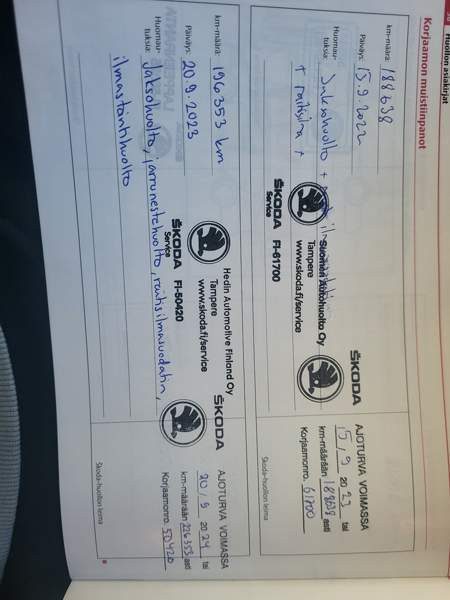 Huollon asiakirjat
Korjaamon muistiinpanot
km-määrä: 188638
Päiväys: 15.9.2022
Huomau-
tuksia: Jaksohuolto +
+ raitisilma +
Suomen Autohuolto Oy
Tampere
www.skoda.fi/service
ŠKODA
Service
FI-61700
ŠKODA
AJOTURVA VOIMASSA
15 / 9 20 23 tai
km-määrään 188638 asti
Korjaamonro. 61700
Skoda-huollon leima
km-määrä: 196353 km
Päiväys: 20.9.2023
Huomau-
tuksia: Jaksohuolto, jarrunestehuolto, raitisilmasuodatin,
ilmastointihuolto
Hedin Automotive Finland Oy
Tampere
www.skoda.fi/service
ŠKODA
Service
FI-50420
ŠKODA
AJOTURVA VOIMASSA
20 / 9 20 24 tai
km-määrään 226353 asti
Korjaamonro. 50420
Skoda-huollon leima